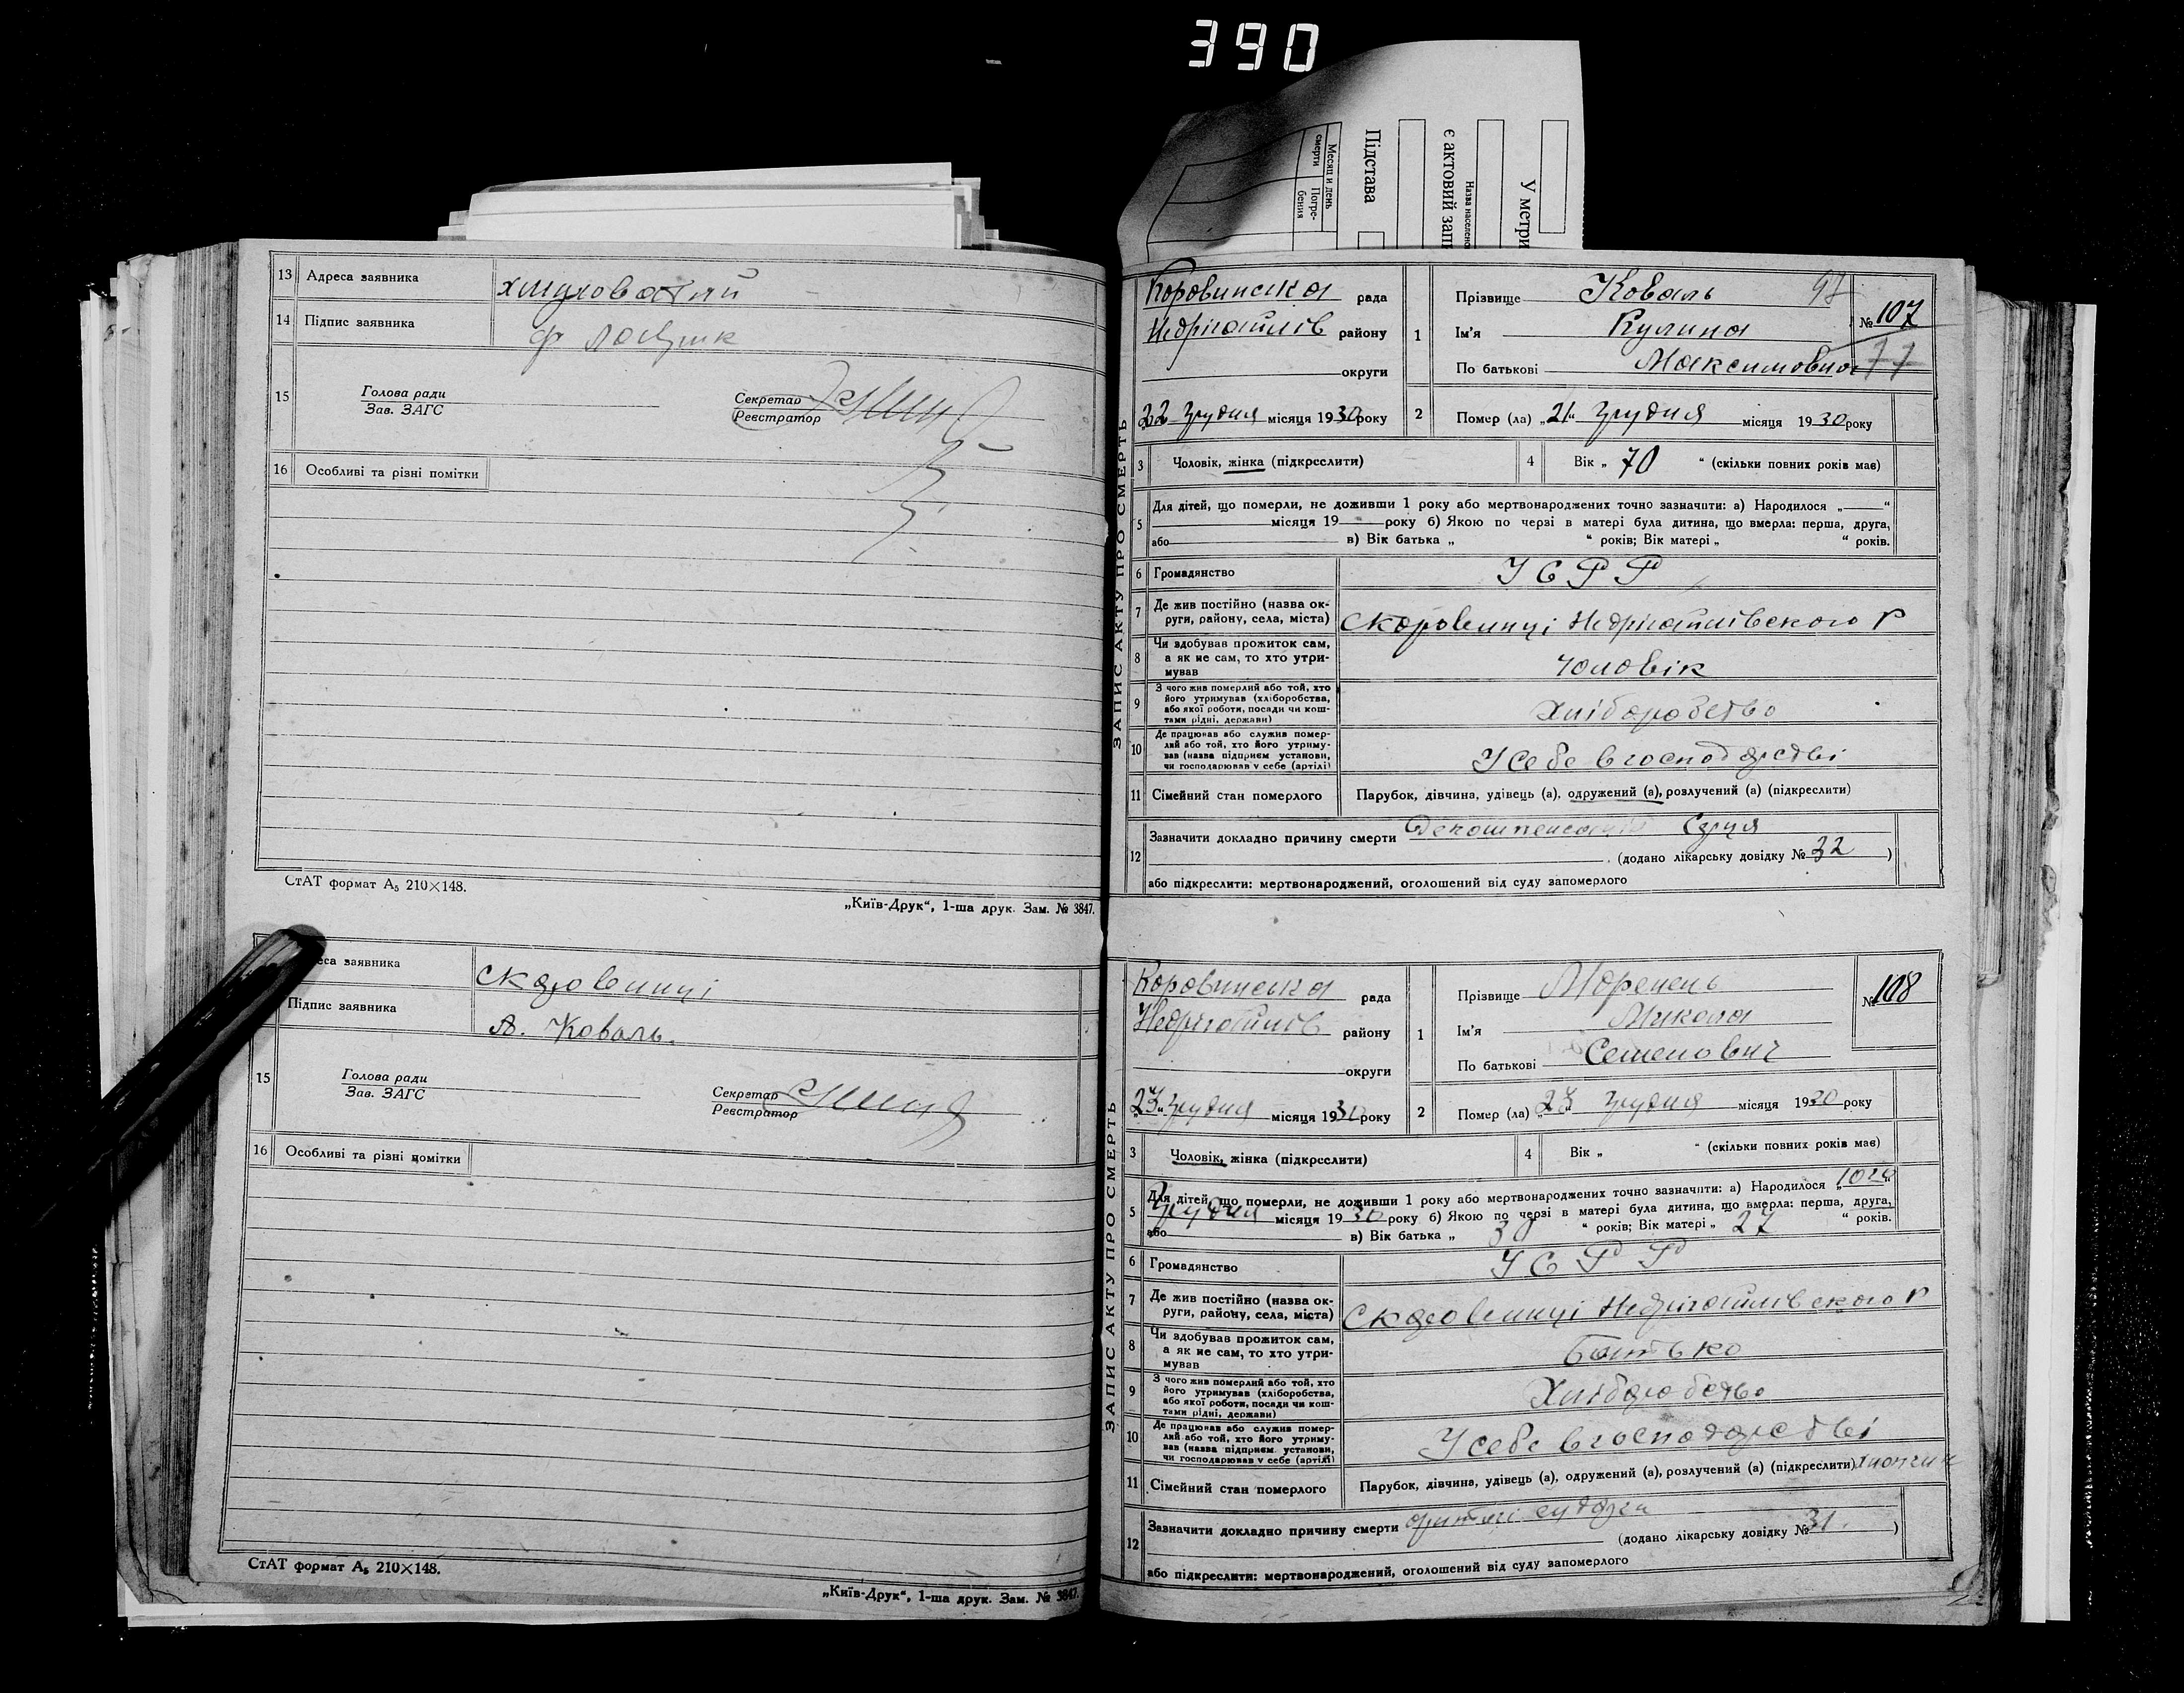 390
Месяц и день
смерти
Погре-
бения
Підстава
є актовий запи
Назва населено
У метри
13 Адреса заявника хмуроватий
14 Підпис заявника ф
15 Голова ради
Зав. ЗАГС
Секретар
Реєстратор
16 Особливі та різні помітки
СтАТ формат А₅ 210×148.
„Київ-Друк“, 1-ша друк. Зам. № 3847.
еса заявника с Коровинці
Підпис заявника А. Коваль.
15 Голова ради
Зав. ЗАГС
Секретар
Реєстратор
16 Особливі та різні помітки
СтАТ формат А₅ 210×148.
„Київ-Друк“, 1-ша друк. Зам. № 3847.
ЗАПИС АКТУ ПРО СМЕРТЬ
Коровинська рада
Недригайлів району
округи
„22 грудня місяця 1930 року
1 Прізвище Коваль
Ім'я Кулина
По батькові Максимовна
№ 107
77
2 Помер (ла) „21“ грудня місяця 1930 року
3 Чоловік, жінка (підкреслити)
4 Вік „ 70 “ (скільки повних років має)
5 Для дітей, що померли, не доживши 1 року або мертвонароджених точно зазначити: а) Народилося „ “
місяця 19 року б) Якою по черзі в матері була дитина, що вмерла: перша, друга,
або в) Вік батька „ “ років; Вік матері „ “ років.
6 Громадянство УСРР
7 Де жив постійно (назва ок-
руги, району, села, міста) с Коровинці Недригайлівского р
8 Чи здобував прожиток сам,
а як не сам, то хто утри-
мував чоловік
9 З чого жив померлий або той, хто
його утримував (хліборобства,
або якої роботи, посади чи кош-
тами рідні, держави) Хліборобство
10 Де працював або служив помер-
лий або той, хто його утриму-
вав (назва підприєм установи,
чи господарював у себе (артілі) У себе в господарстві
11 Сімейний стан померлого Парубок, дівчина, удівець (а), одружений (а), розлучений (а) (підкреслити)
12 Зазначити докладно причину смерти Серця
(додано лікарську довідку № 32 )
або підкреслити: мертвонароджений, оголошений від суду запомерлого
ЗАПИС АКТУ ПРО СМЕРТЬ
Коровинська рада
Недригайлів району
округи
„23“ грудня місяця 1930 року
1 Прізвище Моренець
Ім'я Микола
По батькові Семенович
№ 108
2 Помер (ла) „23“ грудня місяця 1930 року
3 Чоловік, жінка (підкреслити)
4 Вік „ “ (скільки повних років має)
5 Для дітей, що померли, не доживши 1 року або мертвонароджених точно зазначити: а) Народилося „
грудня місяця 1930 року б) Якою по черзі в матері була дитина, що вмерла: перша, друга,
або в) Вік батька „ 30 “ років; Вік матері „ 27 “ років.
6 Громадянство УСРР
7 Де жив постійно (назва ок-
руги, району, села, міста) с Коровинці Недригайлівского р
8 Чи здобував прожиток сам,
а як не сам, то хто утри-
мував батько
9 З чого жив померлий або той, хто
його утримував (хліборобства,
або якої роботи, посади чи кош-
тами рідні, держави) Хліборобство
10 Де працював або служив помер-
лий або той, хто його утриму-
вав (назва підприєм. установи,
чи господарював у себе (артілі) У себе в господарстві
11 Сімейний стан померлого Парубок, дівчина, удівець (а), одружений (а), розлучений (а) (підкреслити)
12 Зазначити докладно причину смерти
(додано лікарську довідку № 31 )
або підкреслити: мертвонароджений, оголошений від суду запомерлого